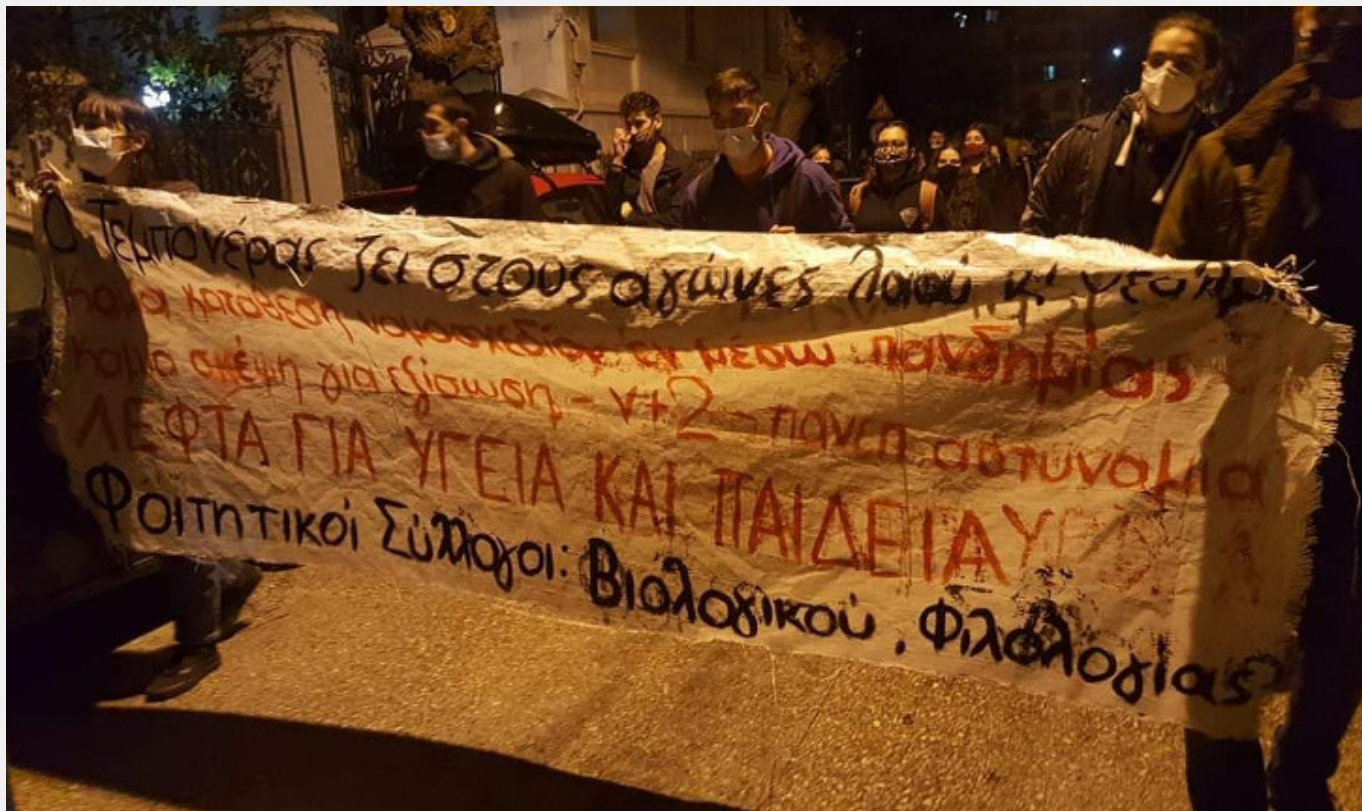 Ο Τεμπονέρας ζει στους αγώνες λαού κ' νεολαίας
Καμία κατάθεση νομοσχεδίου εν μέσω πανδημίας
Καμία σκέψη για εξίσωση - ν+2 - πανεπ. αστυνομία
ΛΕΦΤΑ ΓΙΑ ΥΓΕΙΑ ΚΑΙ ΠΑΙΔΕΙΑ
Φοιτητικοί Σύλλογοι: Βιολογικού, Φιλολογίας